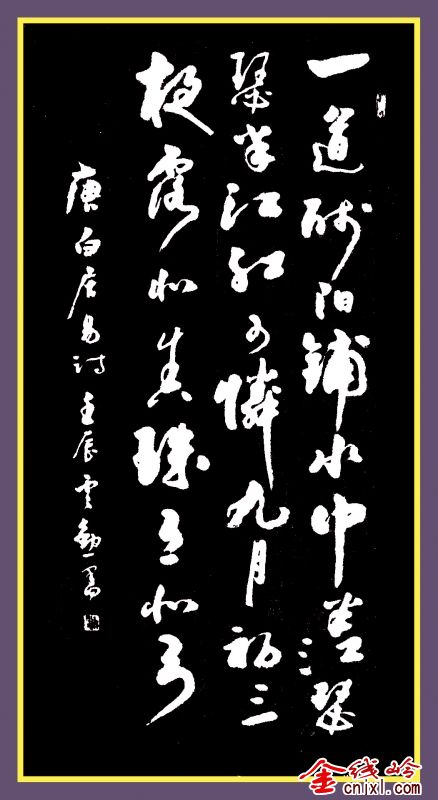 一道残阳鋪水中半江瑟
瑟半江红可憐九月初三
夜露似真珠月似弓
唐白居易诗 壬辰
金线岭
cnjxl.com